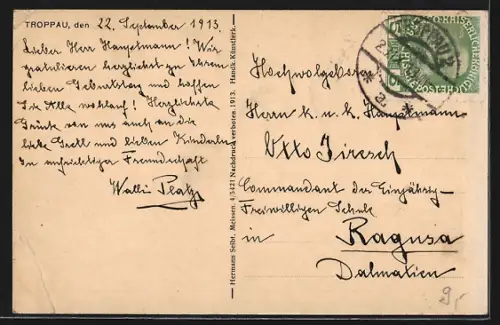 TROPPAU, den 22. September 1913.
Lieber Herr Hauptmann! Wir
gratulieren herzlichst zu Ihrem
lieben Geburtstag und hoffen
Sie Alle wohlauf! Herzlichste
Grüße von uns auch an die
liebe Gretl und lieben Kinderln
In aufrichtiger Freundschaft
Walli Platz
Hermann Seibt, Meissen. 4/5421 Nachdruck verboten 1913. Handk. Künstlerk.
Hochwolgeboren
Herrn k. u. k. Hauptmann
Otto Jiresch
Commandant der Einjährig-
Freiwilligen Schule
in Ragusa
Dalmatien
9,-